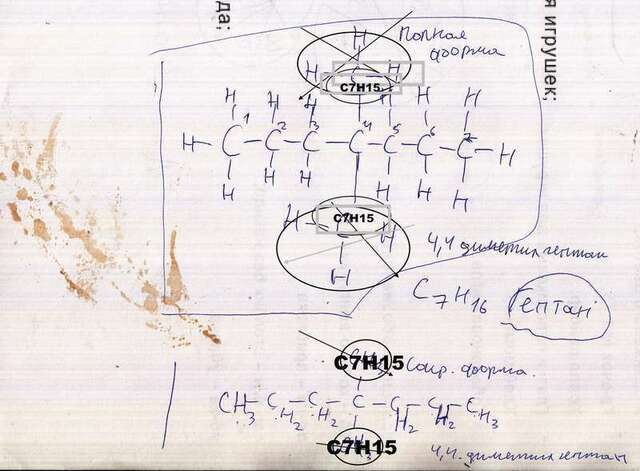 да:
я игрушек;
Полная
форма
H
H H
C7H15
H H H H H H
H-C1-C2-C3-C4-C5-C6-C7-H
H H H H H H
C7H15
H H
H
4,4 диметил гептан
C7H16 Гептан
C7H15 Сокр. форма.
CH3-C-C-C-C-C-CH3
H2 H2 H2 H2 H2
C7H15
4,4. диметилгептан